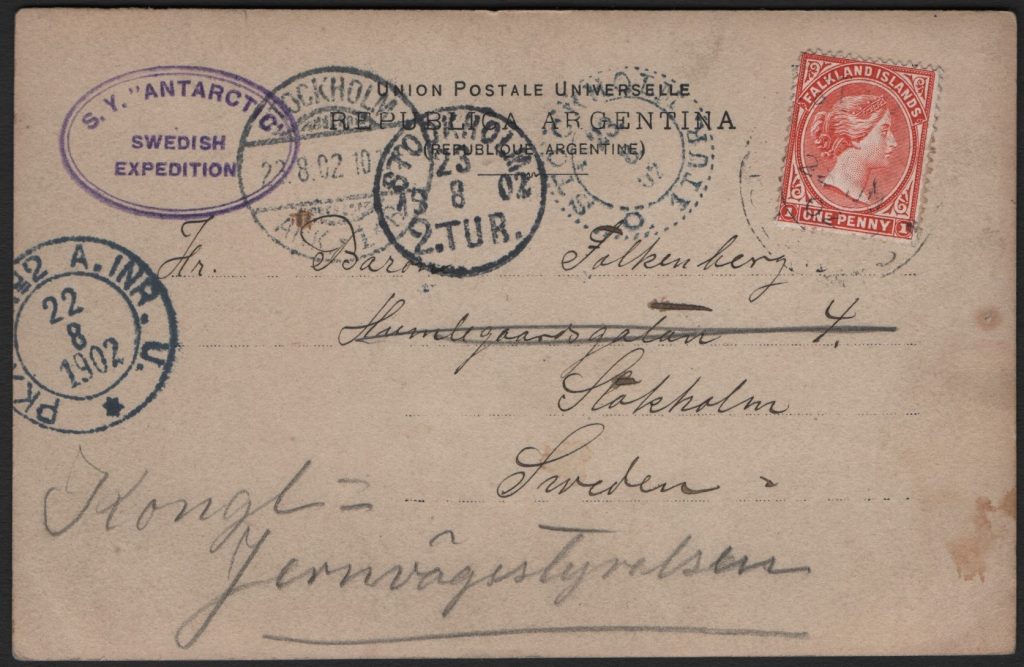 UNION POSTALE UNIVERSELLE
REPUBLICA ARGENTINA
(REPUBLIQUE ARGENTINE)
S. Y. "ANTARCTIC"
SWEDISH
EXPEDITION
STOCKHOLM
22.8.02 10
STOCKHOLM
23
8
19 02
2.TUR.
TUR
FALKLAND ISLANDS
1 ONE PENNY 1
Hr. Baron Falkenberg
Humlegaardsgatan 4.
Stokholm
Sweden
PKXP. No2 A. INR. U.
22
8
1902
Kongl=
Jernvägsstyrelsen